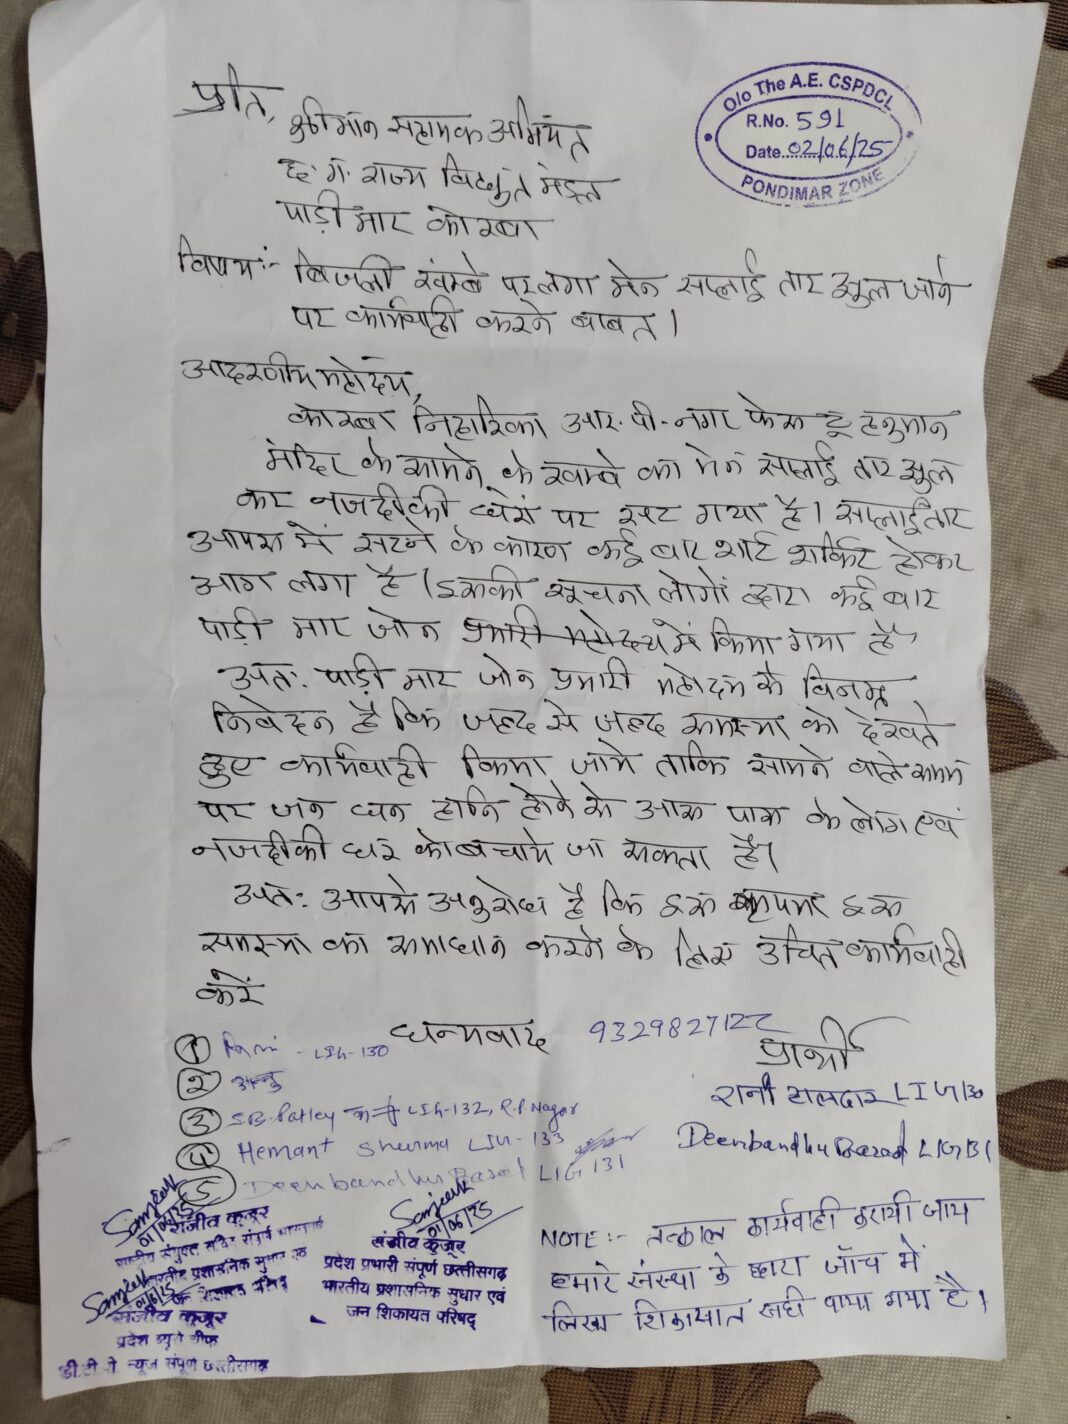 O/o The A.E. CSPDCL
R.No. 591
Date 02/06/25
PONDIMAR ZONE
प्रति,
श्रीमान सहायक अभियंता
छ.ग. राज्य विद्युत मंडल
पाड़ीमार कोरबा
विषय:- बिजली खंम्बे पर लगा मेन सप्लाई तार झुल जाने
पर कार्यवाही करने बाबत।
आदरणीय महोदय,
कोरबा निहारिका आर.पी. नगर फेस टू हनुमान
मंदिर के सामने के खम्बे का मेन सप्लाई तार झुल
कर नजदीकी घरों पर सट गया है। सप्लाई तार
आपस में सटने के कारण कई बार शार्ट शर्किट होकर
आग लगा है। इसकी सूचना लोगों द्वारा कई बार
पाड़ी मार जोन प्रभारी महोदय में किया गया है।
अतः पाड़ी मार जोन प्रभारी महोदय के विनम्र
निवेदन है कि जल्द से जल्द समस्या को देखते
हुए कार्यवाही किया जाये ताकि सामने वाले समय
पर जन धन हानि होने से आस पास के लोग एवं
नजदीकी घर को बचाये जा सकता है।
अतः आपसे अनुरोध है कि इस कृपया इस
समस्या का समाधान करने के लिए उचित कार्यवाही
करें
धन्यवाद 9329827122
प्रार्थी
रानी हालदार LIG 130
Deenbandhu LIG 131
① Rani - LIG-130
② अन्जु
③ S.B. Patley LIG-132, R.P. Nagar
④ Hemant Sharma LIG-133
⑤ Deenbandhu LIG 131
Sanjeev
01/06/25
संजीव कुजूर
प्रशासनिक सुधार एवं
जन शिकायत परिषद्
Sanjeev
01/06/25
संजीव कुजूर
प्रदेश ब्यूरो चीफ
डी.टी.पी. न्यूज संपूर्ण छत्तीसगढ़
Sanjeev
01/06/25
संजीव कुजूर
प्रदेश प्रभारी संपूर्ण छत्तीसगढ़
भारतीय प्रशासनिक सुधार एवं
जन शिकायत परिषद्
NOTE:- तत्काल कार्यवाही करायी जाय
हमारे संस्था के द्वारा जाँच में
लिखा शिकायत सही पाया गया है।